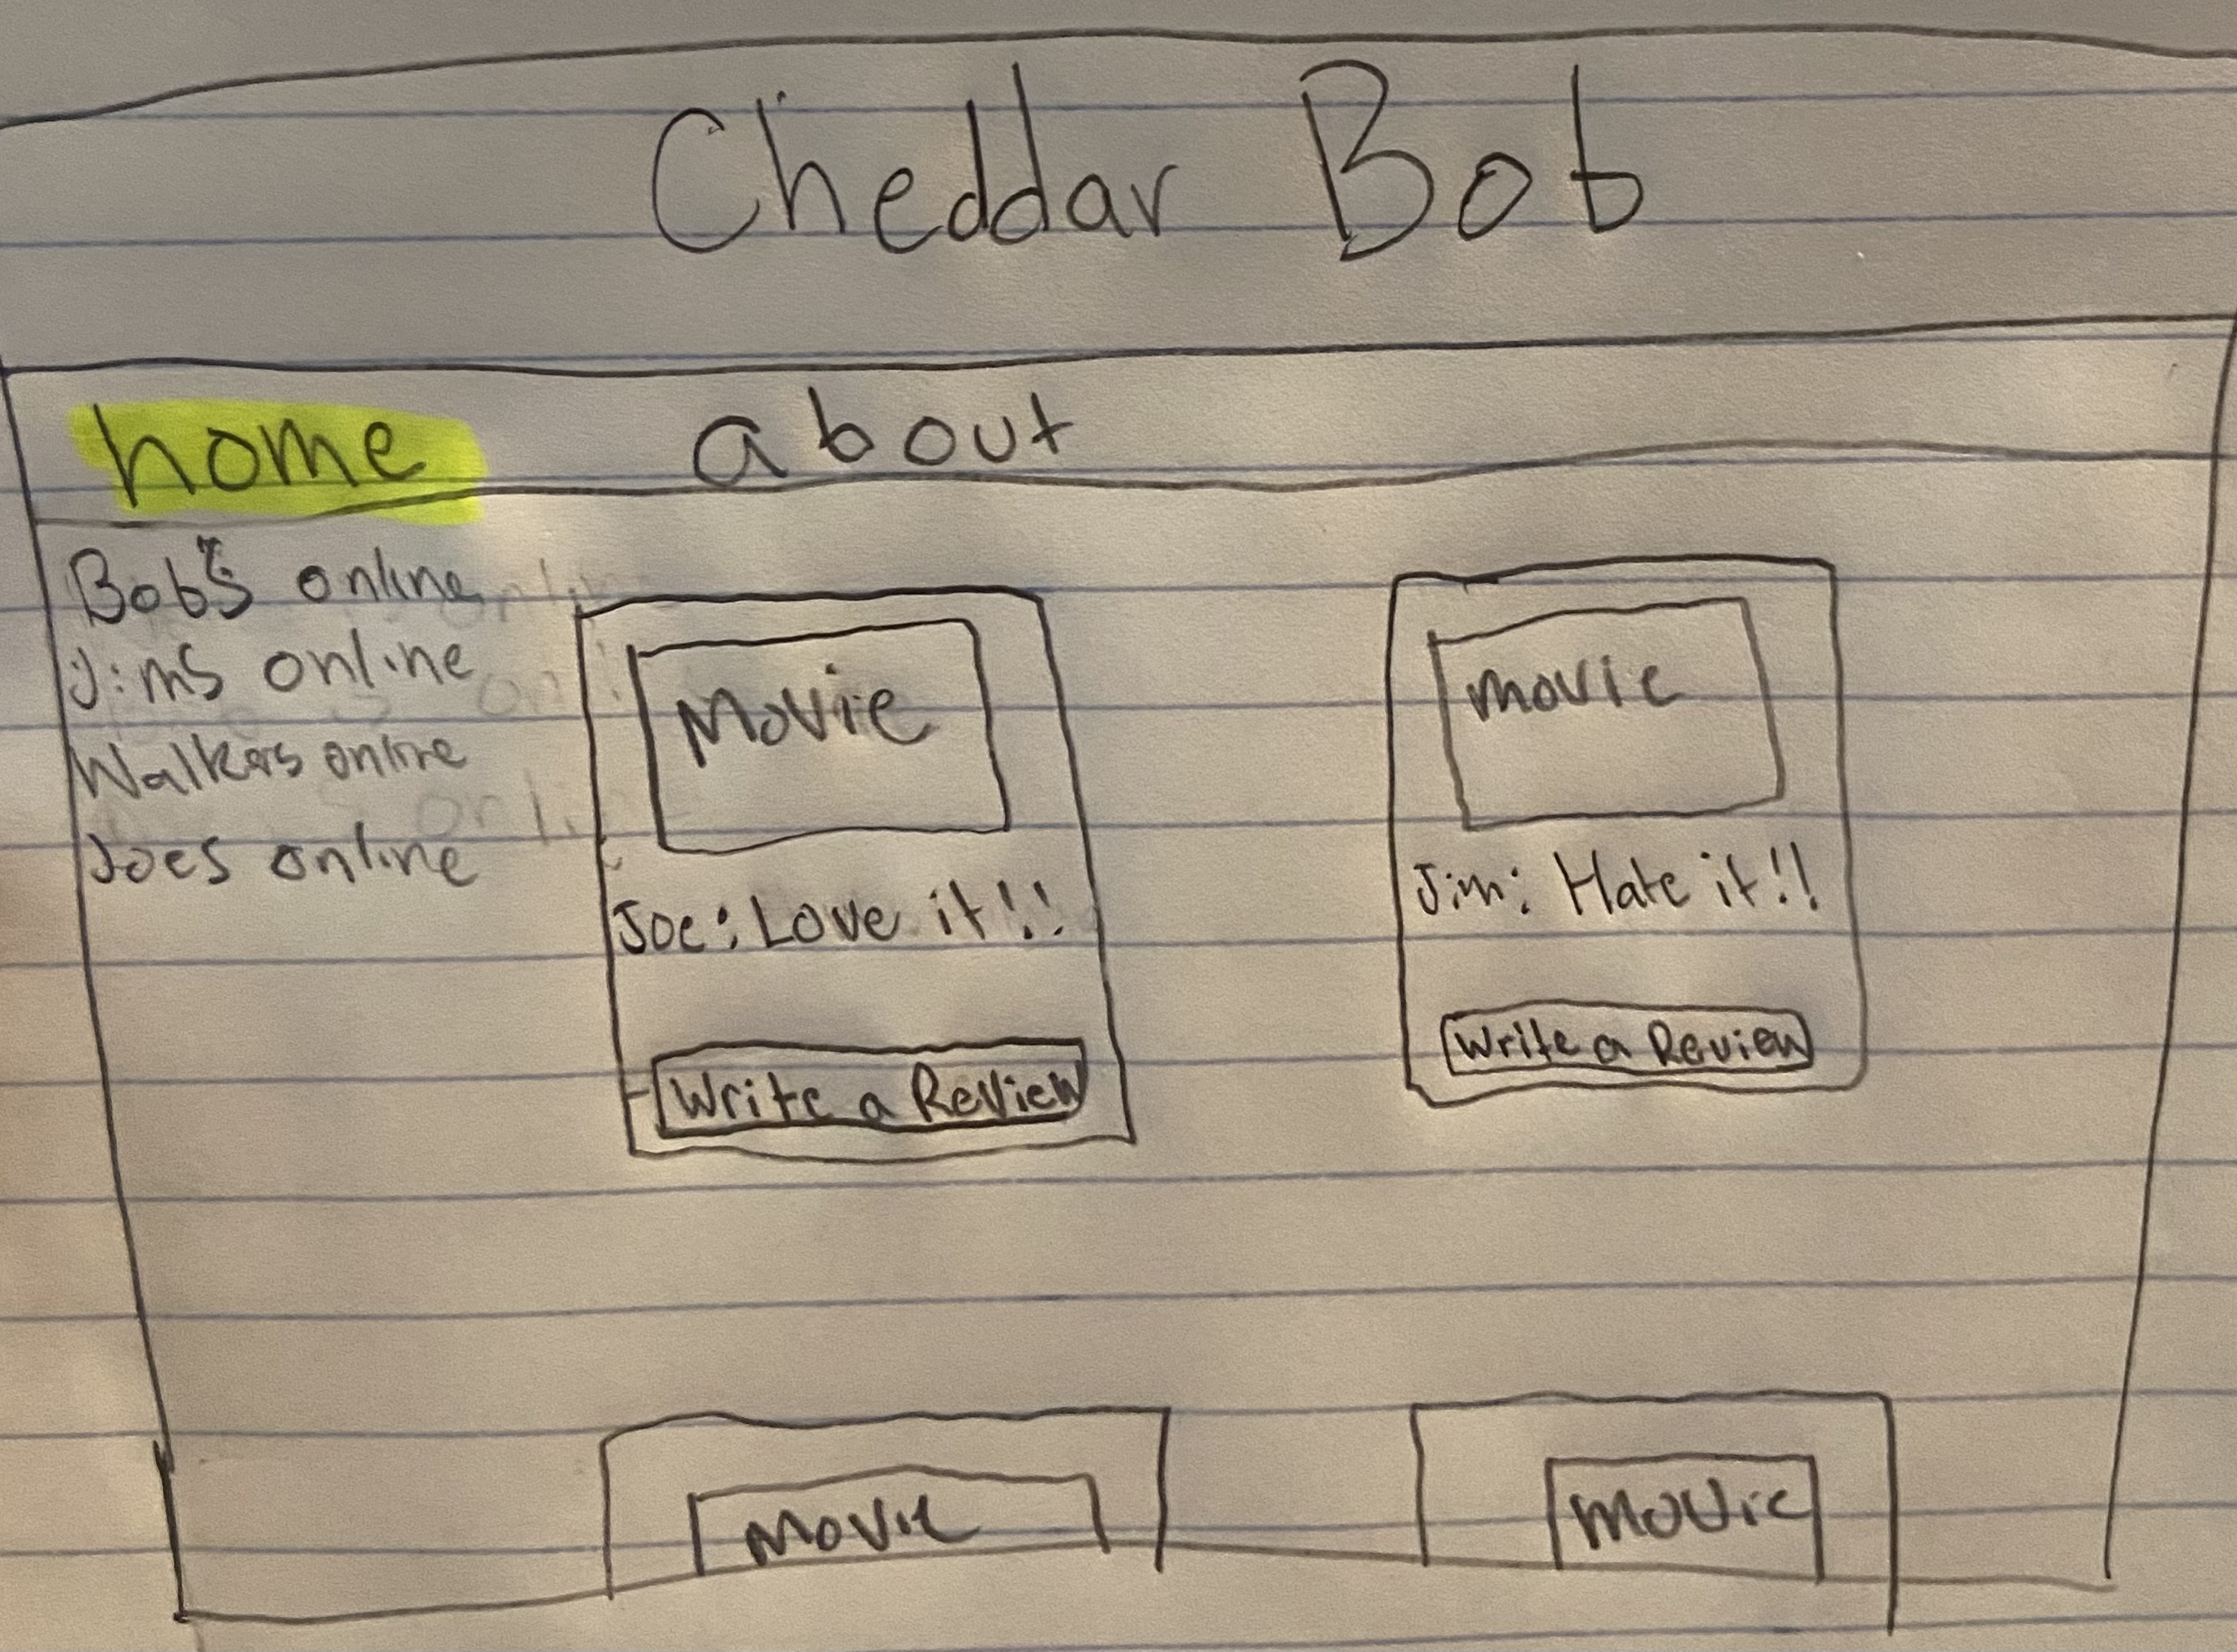 Cheddar Bob
home about
Bob's online
Jims online
Walkers online
Joes online
Movie
Joe: Love it!!
Write a Review
movie
Jim: Hate it!!
Write a Review
Movie
movie